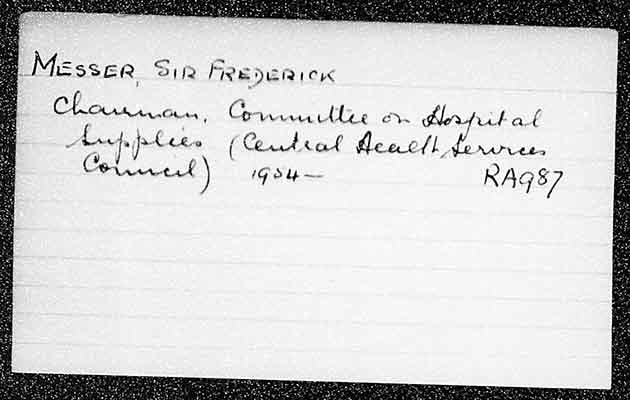 MESSER, SIR FREDERICK
Chairman, Committee on Hospital
Supplies (Central Health Services
Council) 1954— RA987